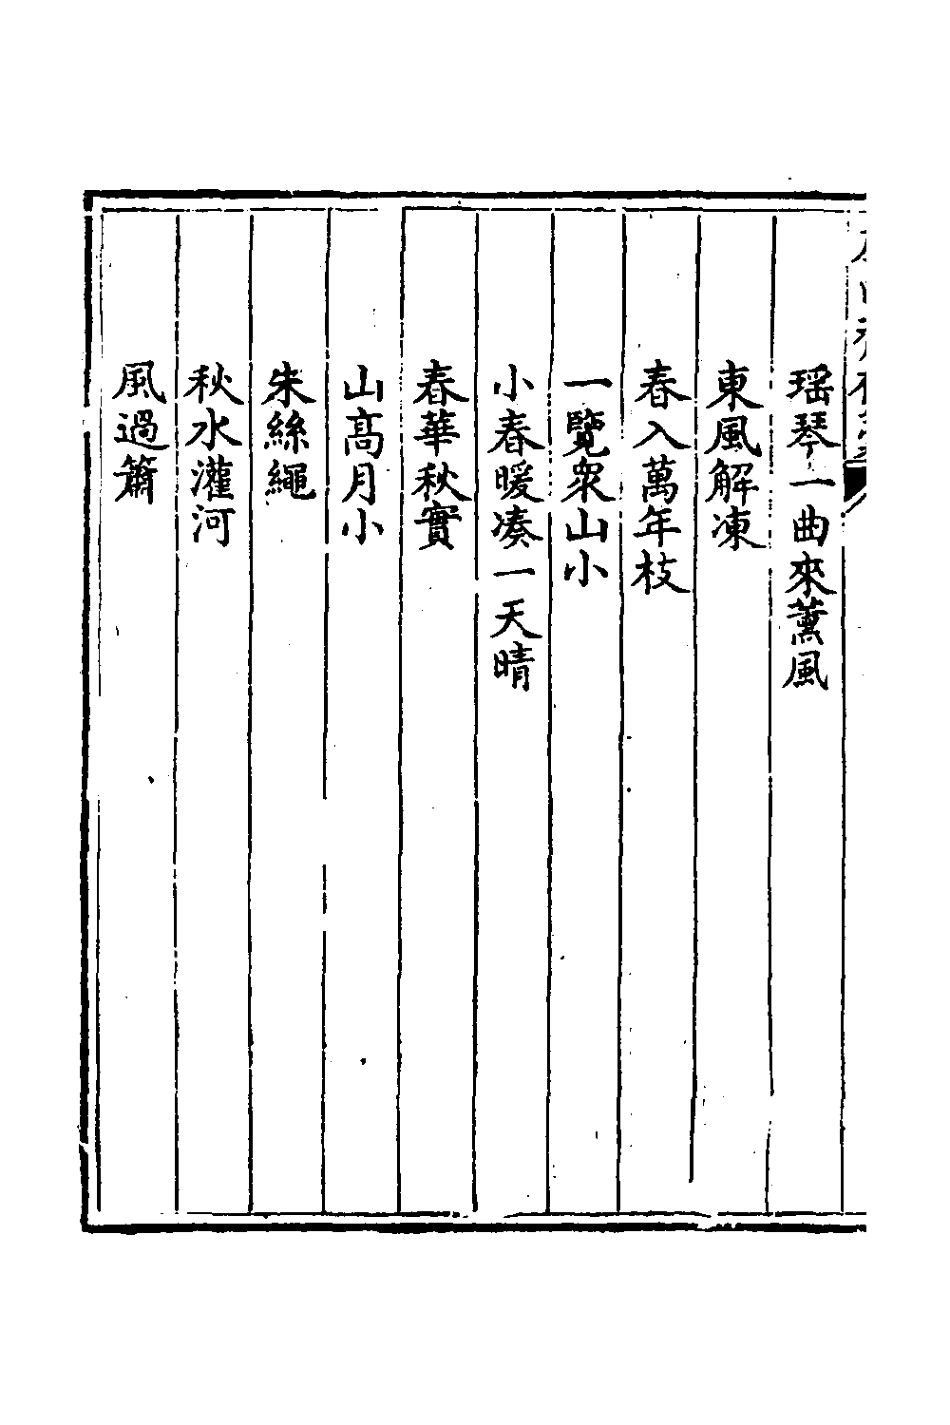 瑶琴一曲來薰風
東風解凍
春入萬年枝
一覽衆山小
小春暖凑一天晴
春華秋實
山高月小
朱絲繩
秋水灌河
風過簫